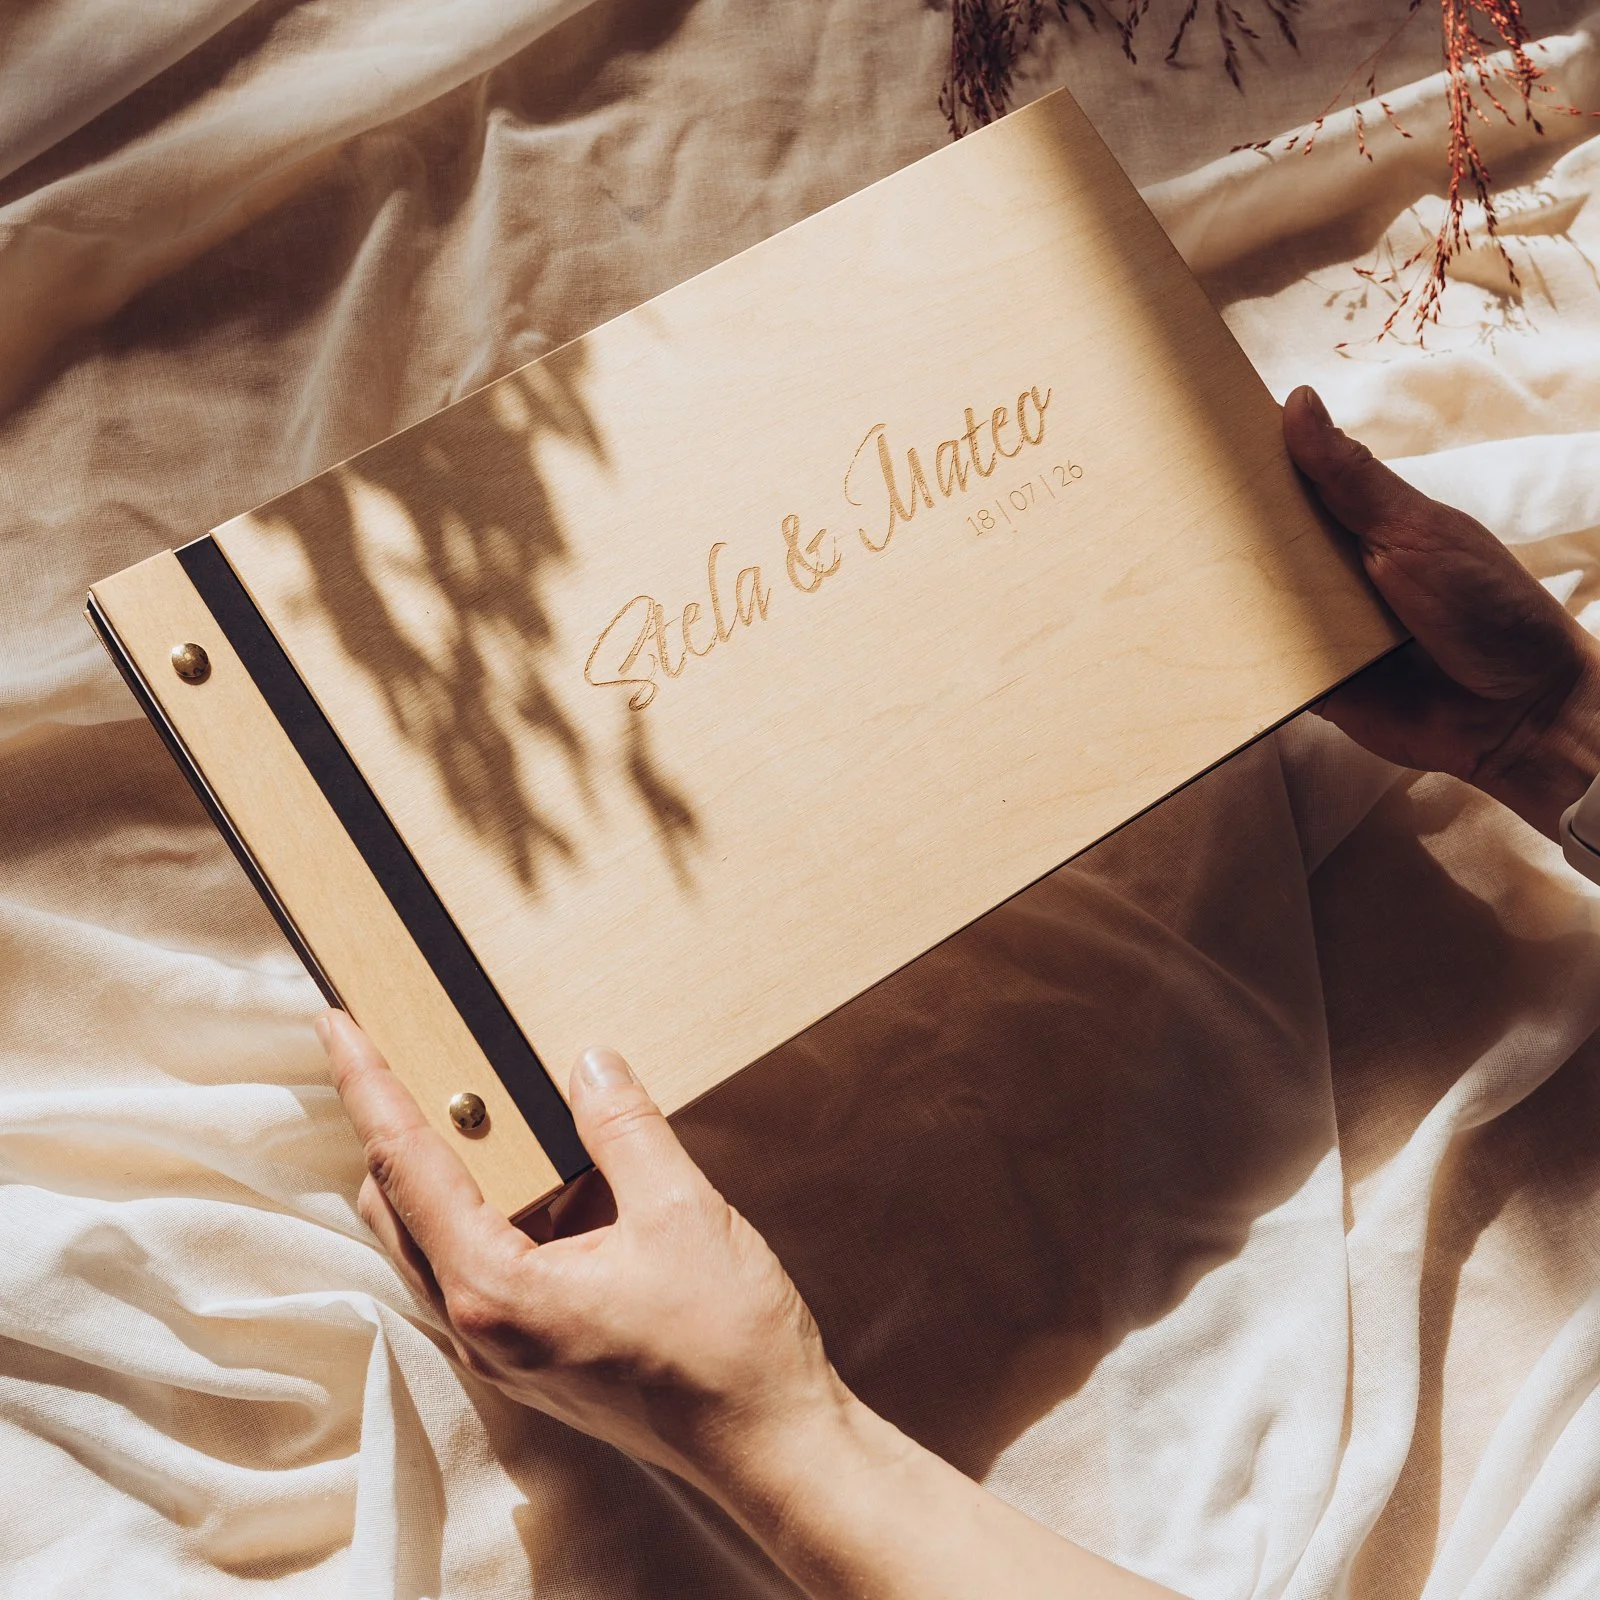 Stela & Mateo
18 | 07 | 26